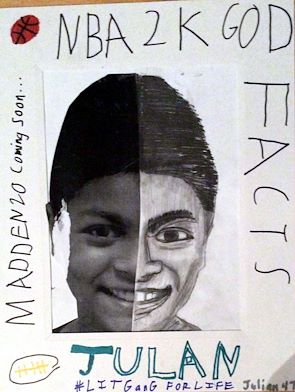 NBA 2K GOD
FACTS
MADDEN20 Coming Soon...
JULAN
#LITGanG FOR LIFE
Julian 4T